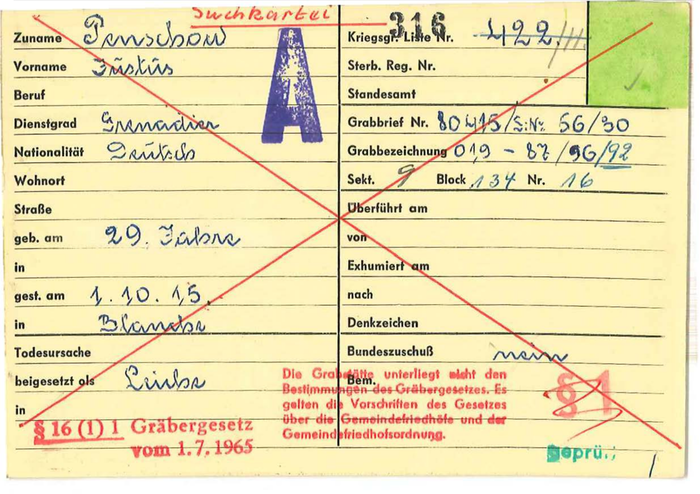 Suchkartei
Zuname Penschow
Vorname Justus
Beruf
Dienstgrad Grenadier
Nationalität Deutsch
Wohnort
Straße
geb. am 29. Jahre
in
gest. am 1.10.15.
in Blanche
Todesursache
beigesetzt als Leiche
in
§ 16 (1) 1 Gräbergesetz
vom 1.7.1965
A
316
Kriegsgr. Liste Nr. 422/II.
Sterb. Reg. Nr.
Standesamt
Grabbrief Nr. 80415/S:Nº 56/30
Grabbezeichnung 019 - 87/96/92
Sekt. 9 Block 134 Nr. 16
Überführt am
von
Exhumiert am
nach
Denkzeichen
Bundeszuschuß nein
Bem.
Die Grabstätte unterliegt nicht den
Bestimmungen des Gräbergesetzes. Es
gelten die Vorschriften des Gesetzes
über die Gemeindefriedhöfe und der
Gemeindefriedhofsordnung.
§ 1
geprü.